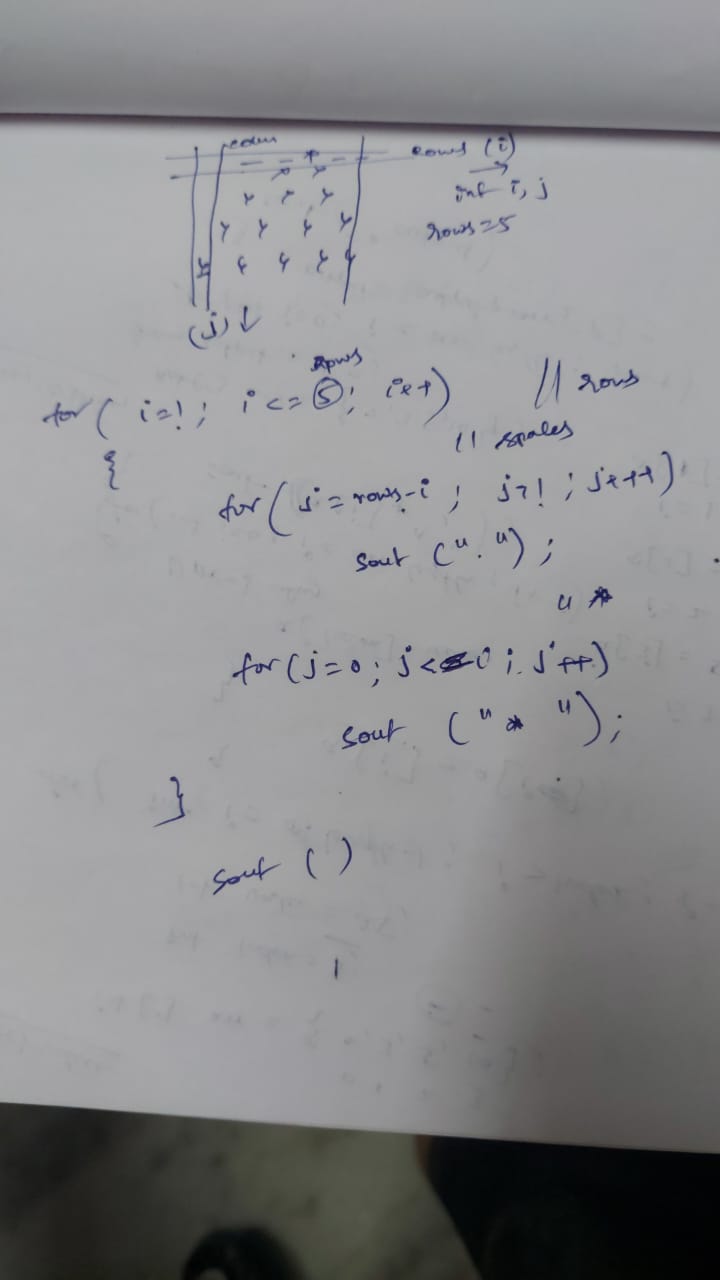 rows (i)
int i, j
rows=5
(j) ↓
rows
for ( i=1; i <= 5; i++) // rows
{ // spaces
for ( j = rows-i ; j>1 ; j++)
sout (" . ") ;
" *
for (j=0; j<=i ; j++)
sout (" * ");
}
sout ( )